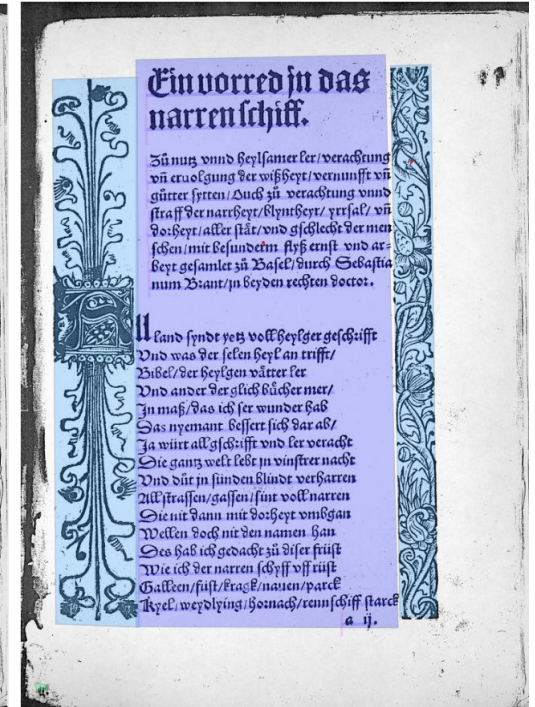 Ein vorred jn das
narrenschiff.
Zů nutz vnnd heylsamer ler/verachtung
vñ eruolgung der wißheyt/vernunfft vñ
gůtter sytten/Ouch zů verachtung vnnd
straff der narrheyt/blyntheyt/yrrsal/vñ
dorheyt/aller stät/vnd gschlecht der men
schen/mit besunderm flyß ernst vnd ar=
beyt gesamlet zů Basel/durch Sebastia
num Brant/jn beyden rechten doctor.
All land syndt yetz voll heylger geschrifft
Vnd was der selen heyl an trifft/
Bibel/der heylgen vätter ler
Vnd ander der glich bůcher mer/
Jn maß/das ich ser wunder hab
Das nyemant bessert sich dar ab/
Ja würt all gschrifft vnd ler veracht
Die gantz welt lebt jn vinstrer nacht
Vnd důt jn sünden blindt verharren
All strassen/gassen/sint voll narren
Die nit dann mit dorheyt vmbgan
Wellen doch nit den namen han
Des hab ich gedacht zů diser früst
Wie ich der narren schyff vff rüst
Galleen/füst/kragk/nauen/parck
Kyel/weydlying/hornach/rennschiff starck
a ij.